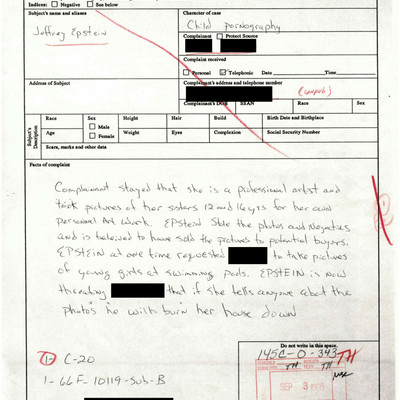 Indices: Negative See below
Subject's name and aliases
Character of case
Jeffrey Epstein
Child pornography
Complainant Protect Source
Complaint received
Personal Telephonic Date Time
Address of Subject
Complainant's address and telephone number
(unpub)
Complainant's DOB SSAN Race Sex
Subject's Description
Race Sex Height Hair Build Birth Date and Birthplace
Male
Age Female Weight Eyes Complexion Social Security Number
Scars, marks and other data
Facts of complaint
Complainant stayed that she is a professional artist and
took pictures of her sisters 12 and 16 yrs for her own
personal Art Work. EPstein Stole the photos and Negatives
and is beleived to have sold the pictures to potential buyers.
EPSTEIN at one time requested to take pictures
of young girls at swimming pools. EPSTEIN is now
that if she tells anyone about the
photos he will burn her house down
Do not write in this space.
1 C-20
145C-0-343
TH
1-66F-10119-Sub-B
TH TH
SEP 3